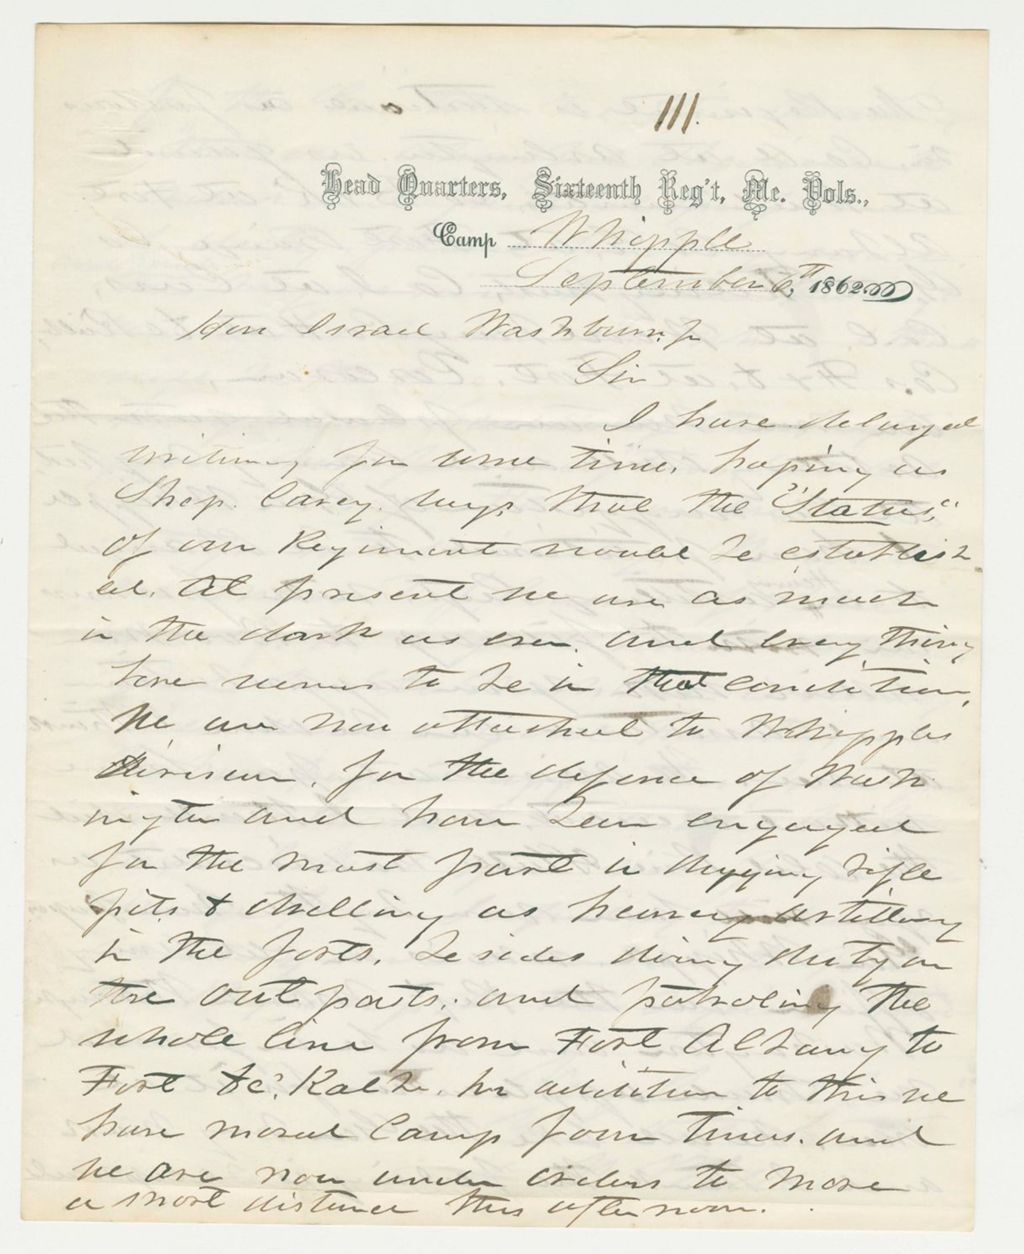 111.
Head Quarters, Sixteenth Reg't, Me. Vols.,
Camp Whipple
September 6th, 1862
Hon Israel Washburn Jr
Sir
I have delayed
writing for some time, hoping as
Shep. Carey says that the "Status"
of our Regiment would be establish
ed. At present we are as much
in the dark as ever, and every thing
here seems to be in that condition,
We are now attached to Whipples
Division, for the defence of Wash
ington and have been engaged
for the most part in digging rifle
pits & drilling as heavy artillery
in the forts, besides doing duty on
the out posts, and patroling the
whole line from Fort Albany to
Fort De Kalb. In addition to this we
have moved Camp four times, and
we are now under orders to move
a short distance this afternoon.